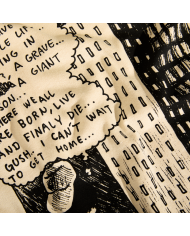 LE LI
ING IN
A GRAVE
A GIANT
SON
HERE WE ALL
RE BORN, LIVE
AND FINALLY DIE...
GUSH CAN'T WAIT
TO GET HOME...